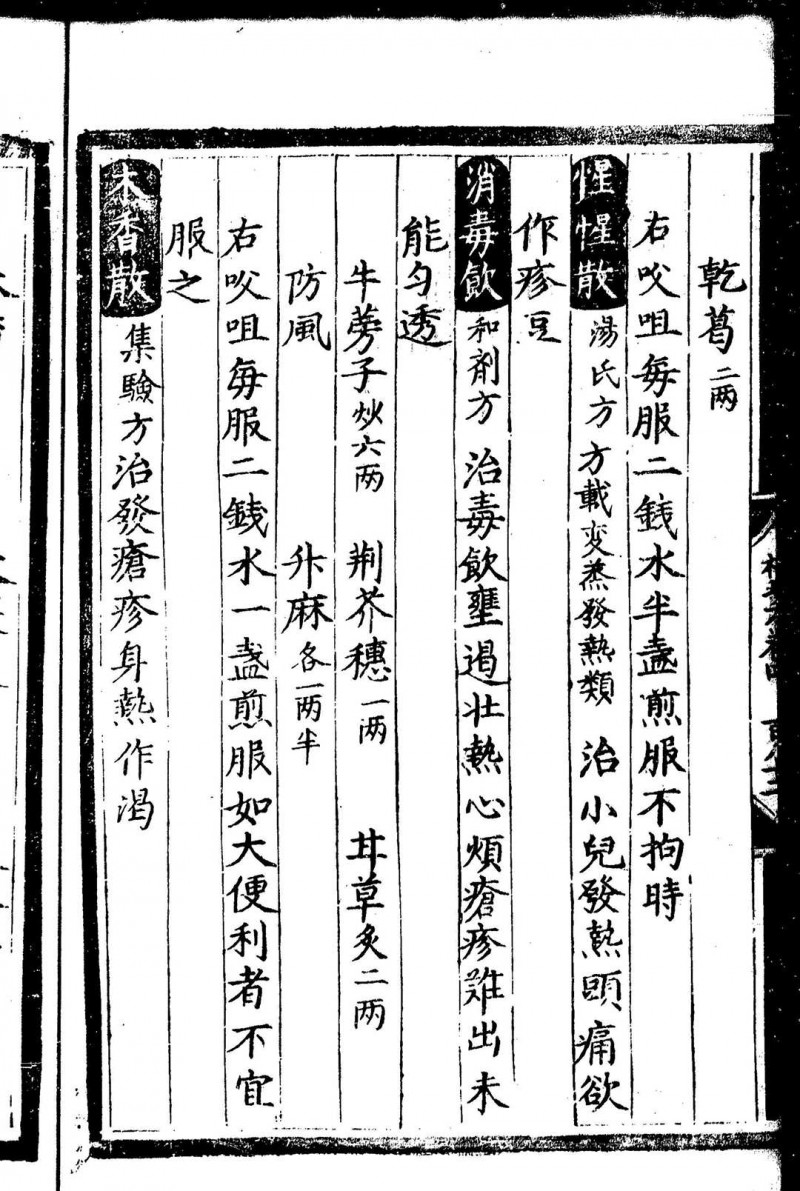 乾葛二两
右㕮咀每服二錢水半盞煎服不拘時
惺惺散 湯氏方方載变蒸發熱類 治小兒發熱頭痛欲
作疹豆
消毒飲 和剂方 治毒飲壅遏壮熱心煩瘡疹難出未
能匀透
牛蒡子炒六两 荆芥穗一两 甘草炙二两
防風 升麻各一两半
右㕮咀每服二錢水一盞煎服如大便利者不宜
服之
木香散 集驗方治發瘡疹身熱作渴